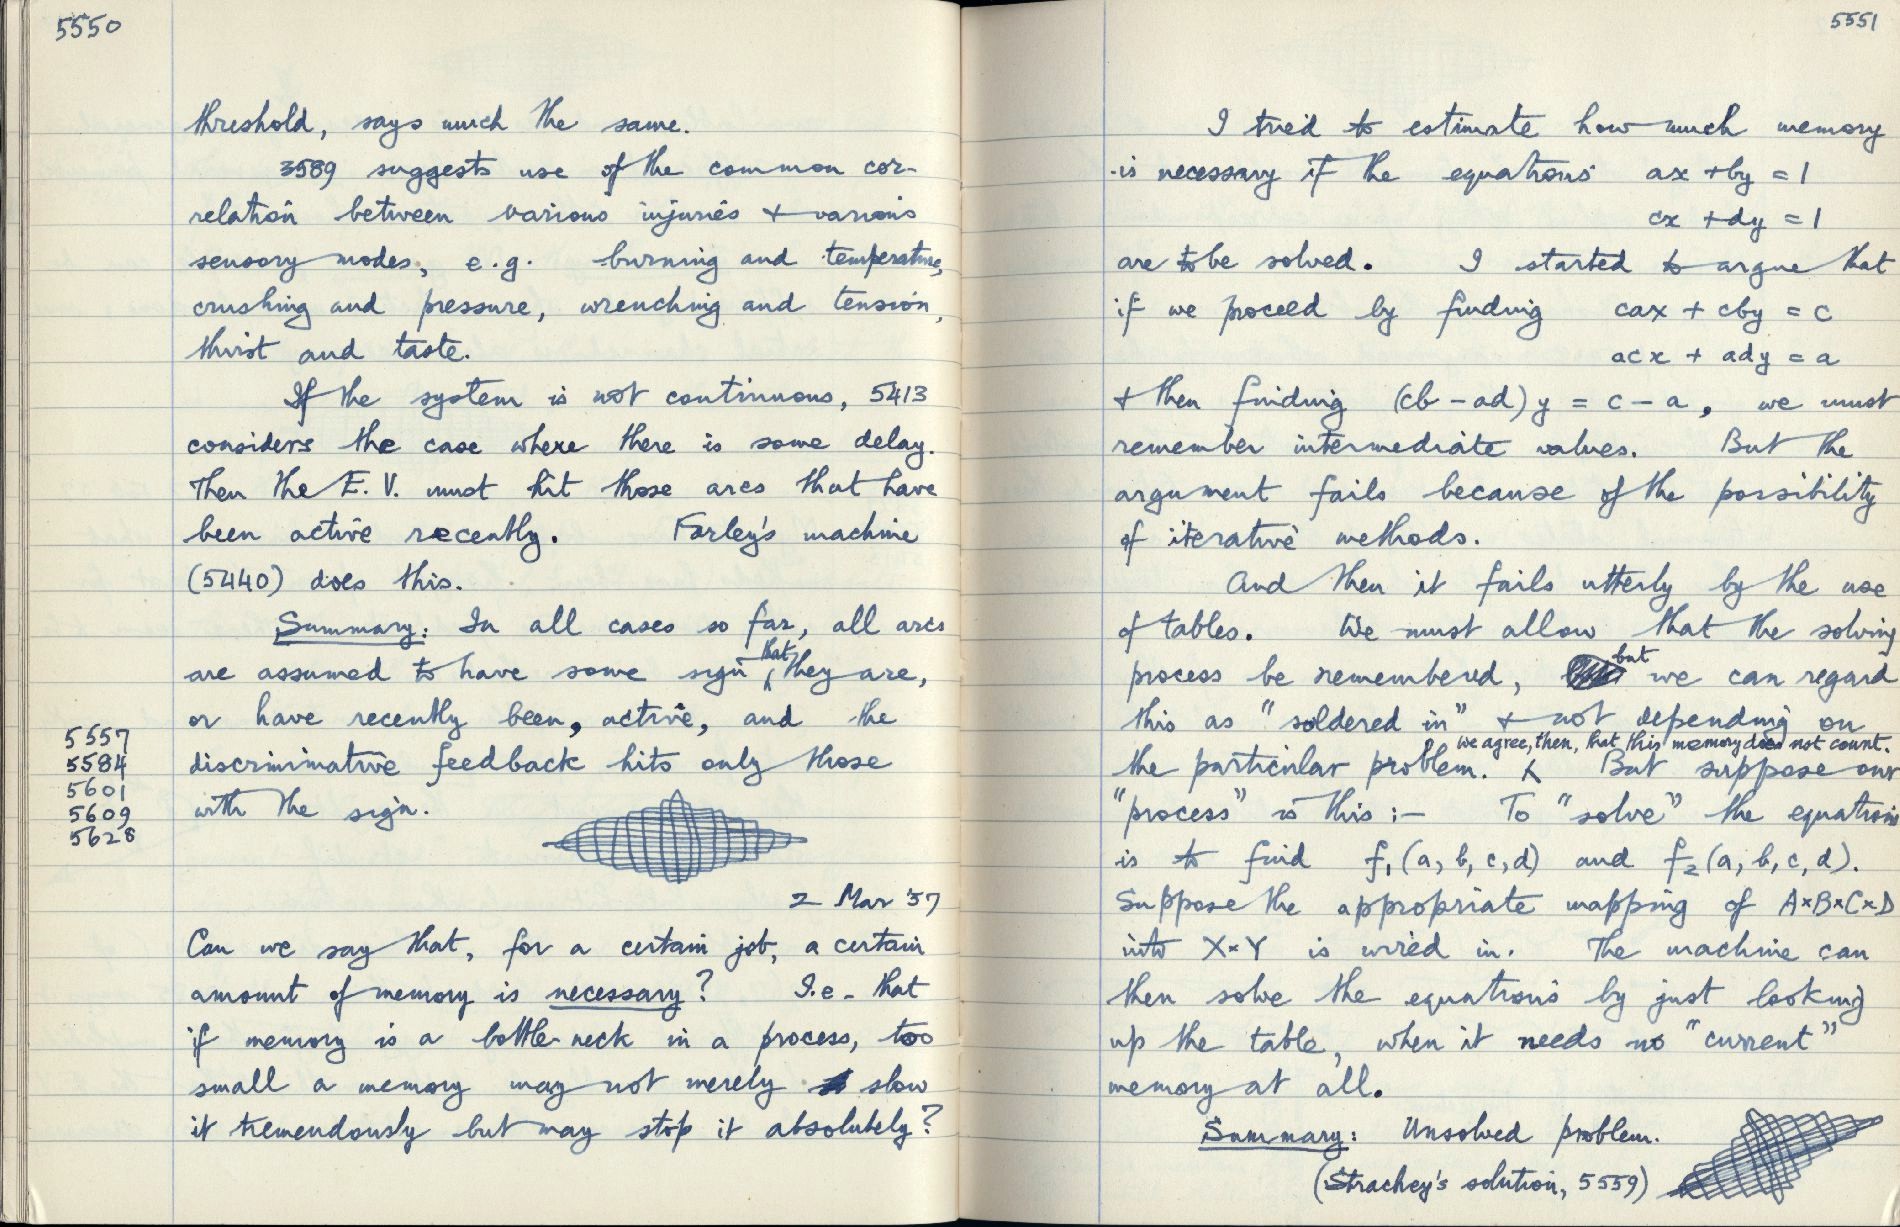 5550
threshold, says much the same.
3589 suggests use of the common cor-
relation between various injuries + various
sensory modes, e.g. burning and temperature,
crushing and pressure, wrenching and tension,
thirst and taste.
If the system is not continuous, 5413
considers the case where there is some delay.
Then the E.V. must hit those arcs that have
been active recently. Farley's machine
(5440) does this.
Summary: In all cases so far, all arcs
are assumed to have some sign that they are,
or have recently been, active, and the
discriminative feedback hits only those
with the sign.
5557
5584
5601
5609
5628
2 Mar '57
Can we say that, for a certain job, a certain
amount of memory is necessary? I.e. that
if memory is a bottle-neck in a process, too
small a memory may not merely slow
it tremendously but may stop it absolutely?
5551
I tried to estimate how much memory
is necessary if the equations ax + by = 1
cx + dy = 1
are to be solved. I started to argue that
if we proceed by finding cax + cby = c
acx + ady = a
+ then finding (cb - ad) y = c - a, we must
remember intermediate values. But the
argument fails because of the possibility
of iterative methods.
And then it fails utterly by the use
of tables. We must allow that the solving
process be remembered, but we can regard
this as "soldered in" + not depending on
we agree, then, that this memory does not count.
the particular problem. But suppose our
"process" is this :— To "solve" the equations
is to find f₁(a, b, c, d) and f₂(a, b, c, d).
Suppose the appropriate mapping of A×B×C×D
into X×Y is wired in. The machine can
then solve the equations by just looking
up the table, when it needs no "current"
memory at all.
Summary: Unsolved problem.
(Strachey's solution, 5559)